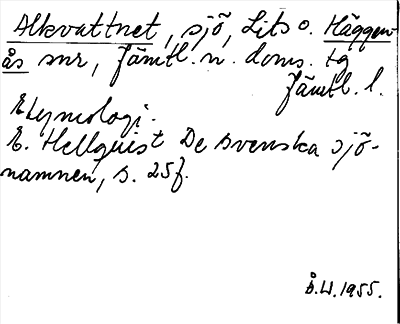 Alkvattnet, sjö, Lits o. Häggen-
ås snr, Jämtl. n. doms. tg
Jämtl. l.
Etymologi.
E. Hellquist De svenska sjö-
namnen, s. 25f.
B.W. 1955.